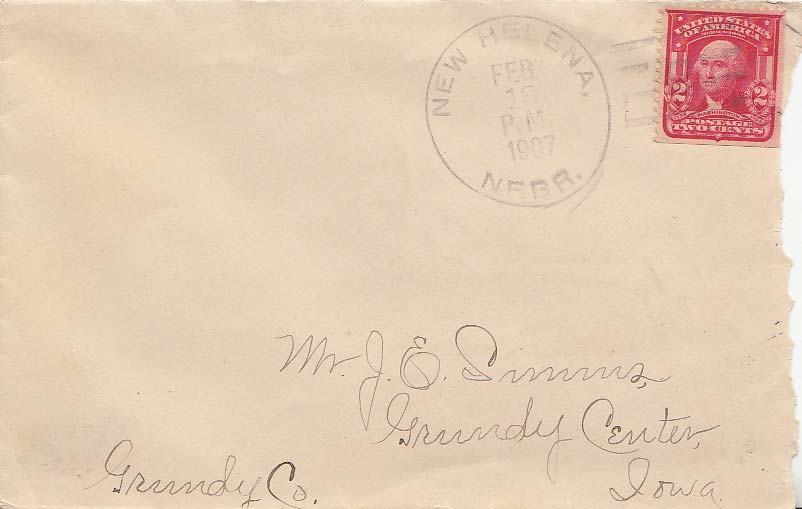 NEW HELENA,
FEB
P.M.
1907
NEBR.
UNITED STATES
OF AMERICA
2 2
WASHINGTON
POSTAGE
TWO CENTS
Mr. J. E. Simms,
Grundy Center,
Grundy Co. Iowa.